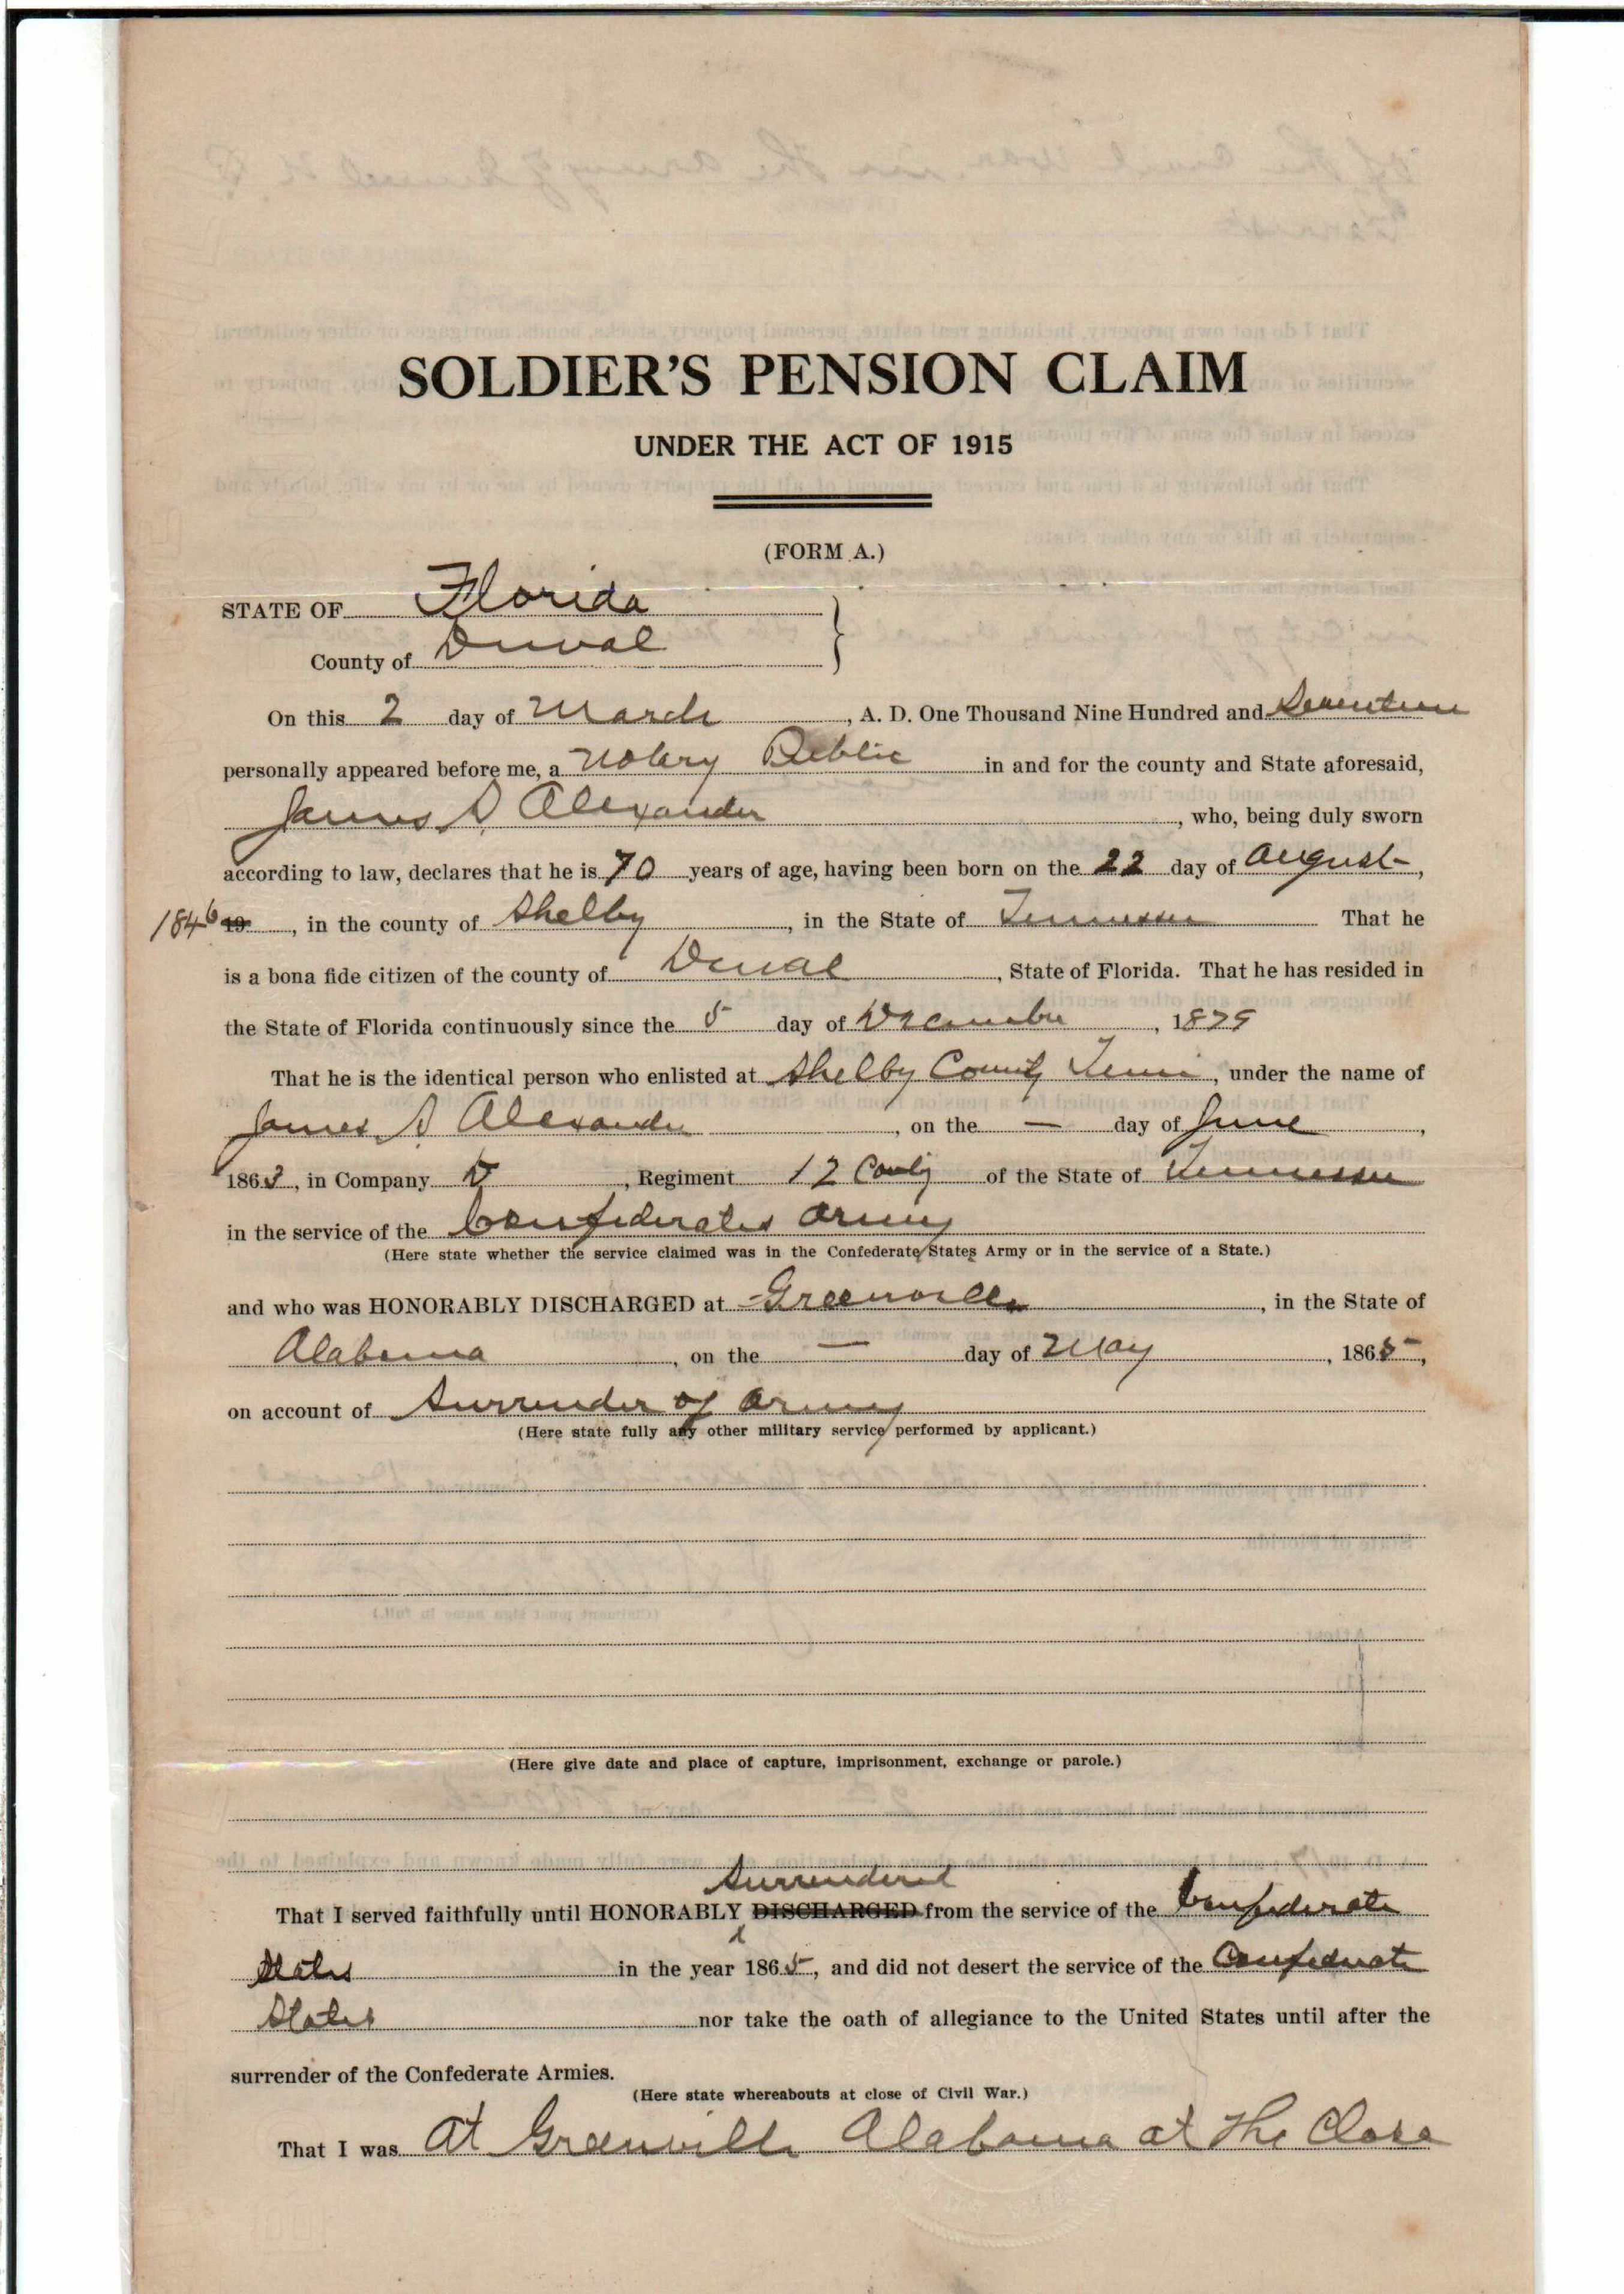 SOLDIER'S PENSION CLAIM
UNDER THE ACT OF 1915
(FORM A.)
STATE OF Florida
County of Duval
On this 2 day of March, A. D. One Thousand Nine Hundred and Seventeen
personally appeared before me, a Notary Public in and for the county and State aforesaid,
James Alexander, who, being duly sworn
according to law, declares that he is 70 years of age, having been born on the 22 day of August,
1846 19, in the county of Shelby, in the State of Tennessee That he
is a bona fide citizen of the county of Duval, State of Florida. That he has resided in
the State of Florida continuously since the 5 day of December, 1879
That he is the identical person who enlisted at Shelby County Tenn, under the name of
James Alexander, on the — day of June,
1863, in Company, Regiment 12 of the State of Tennessee
in the service of the Confederates Army
(Here state whether the service claimed was in the Confederate States Army or in the service of a State.)
and who was HONORABLY DISCHARGED at Greenville, in the State of
Alabama, on the — day of May, 1865,
on account of Surrender of Army
(Here state fully any other military service performed by applicant.)
(Here give date and place of capture, imprisonment, exchange or parole.)
Surrendered
That I served faithfully until HONORABLY DISCHARGED from the service of the Confederate
States in the year 1865, and did not desert the service of the Confederate
States nor take the oath of allegiance to the United States until after the
surrender of the Confederate Armies.
(Here state whereabouts at close of Civil War.)
That I was At Greenville Alabama at the Close